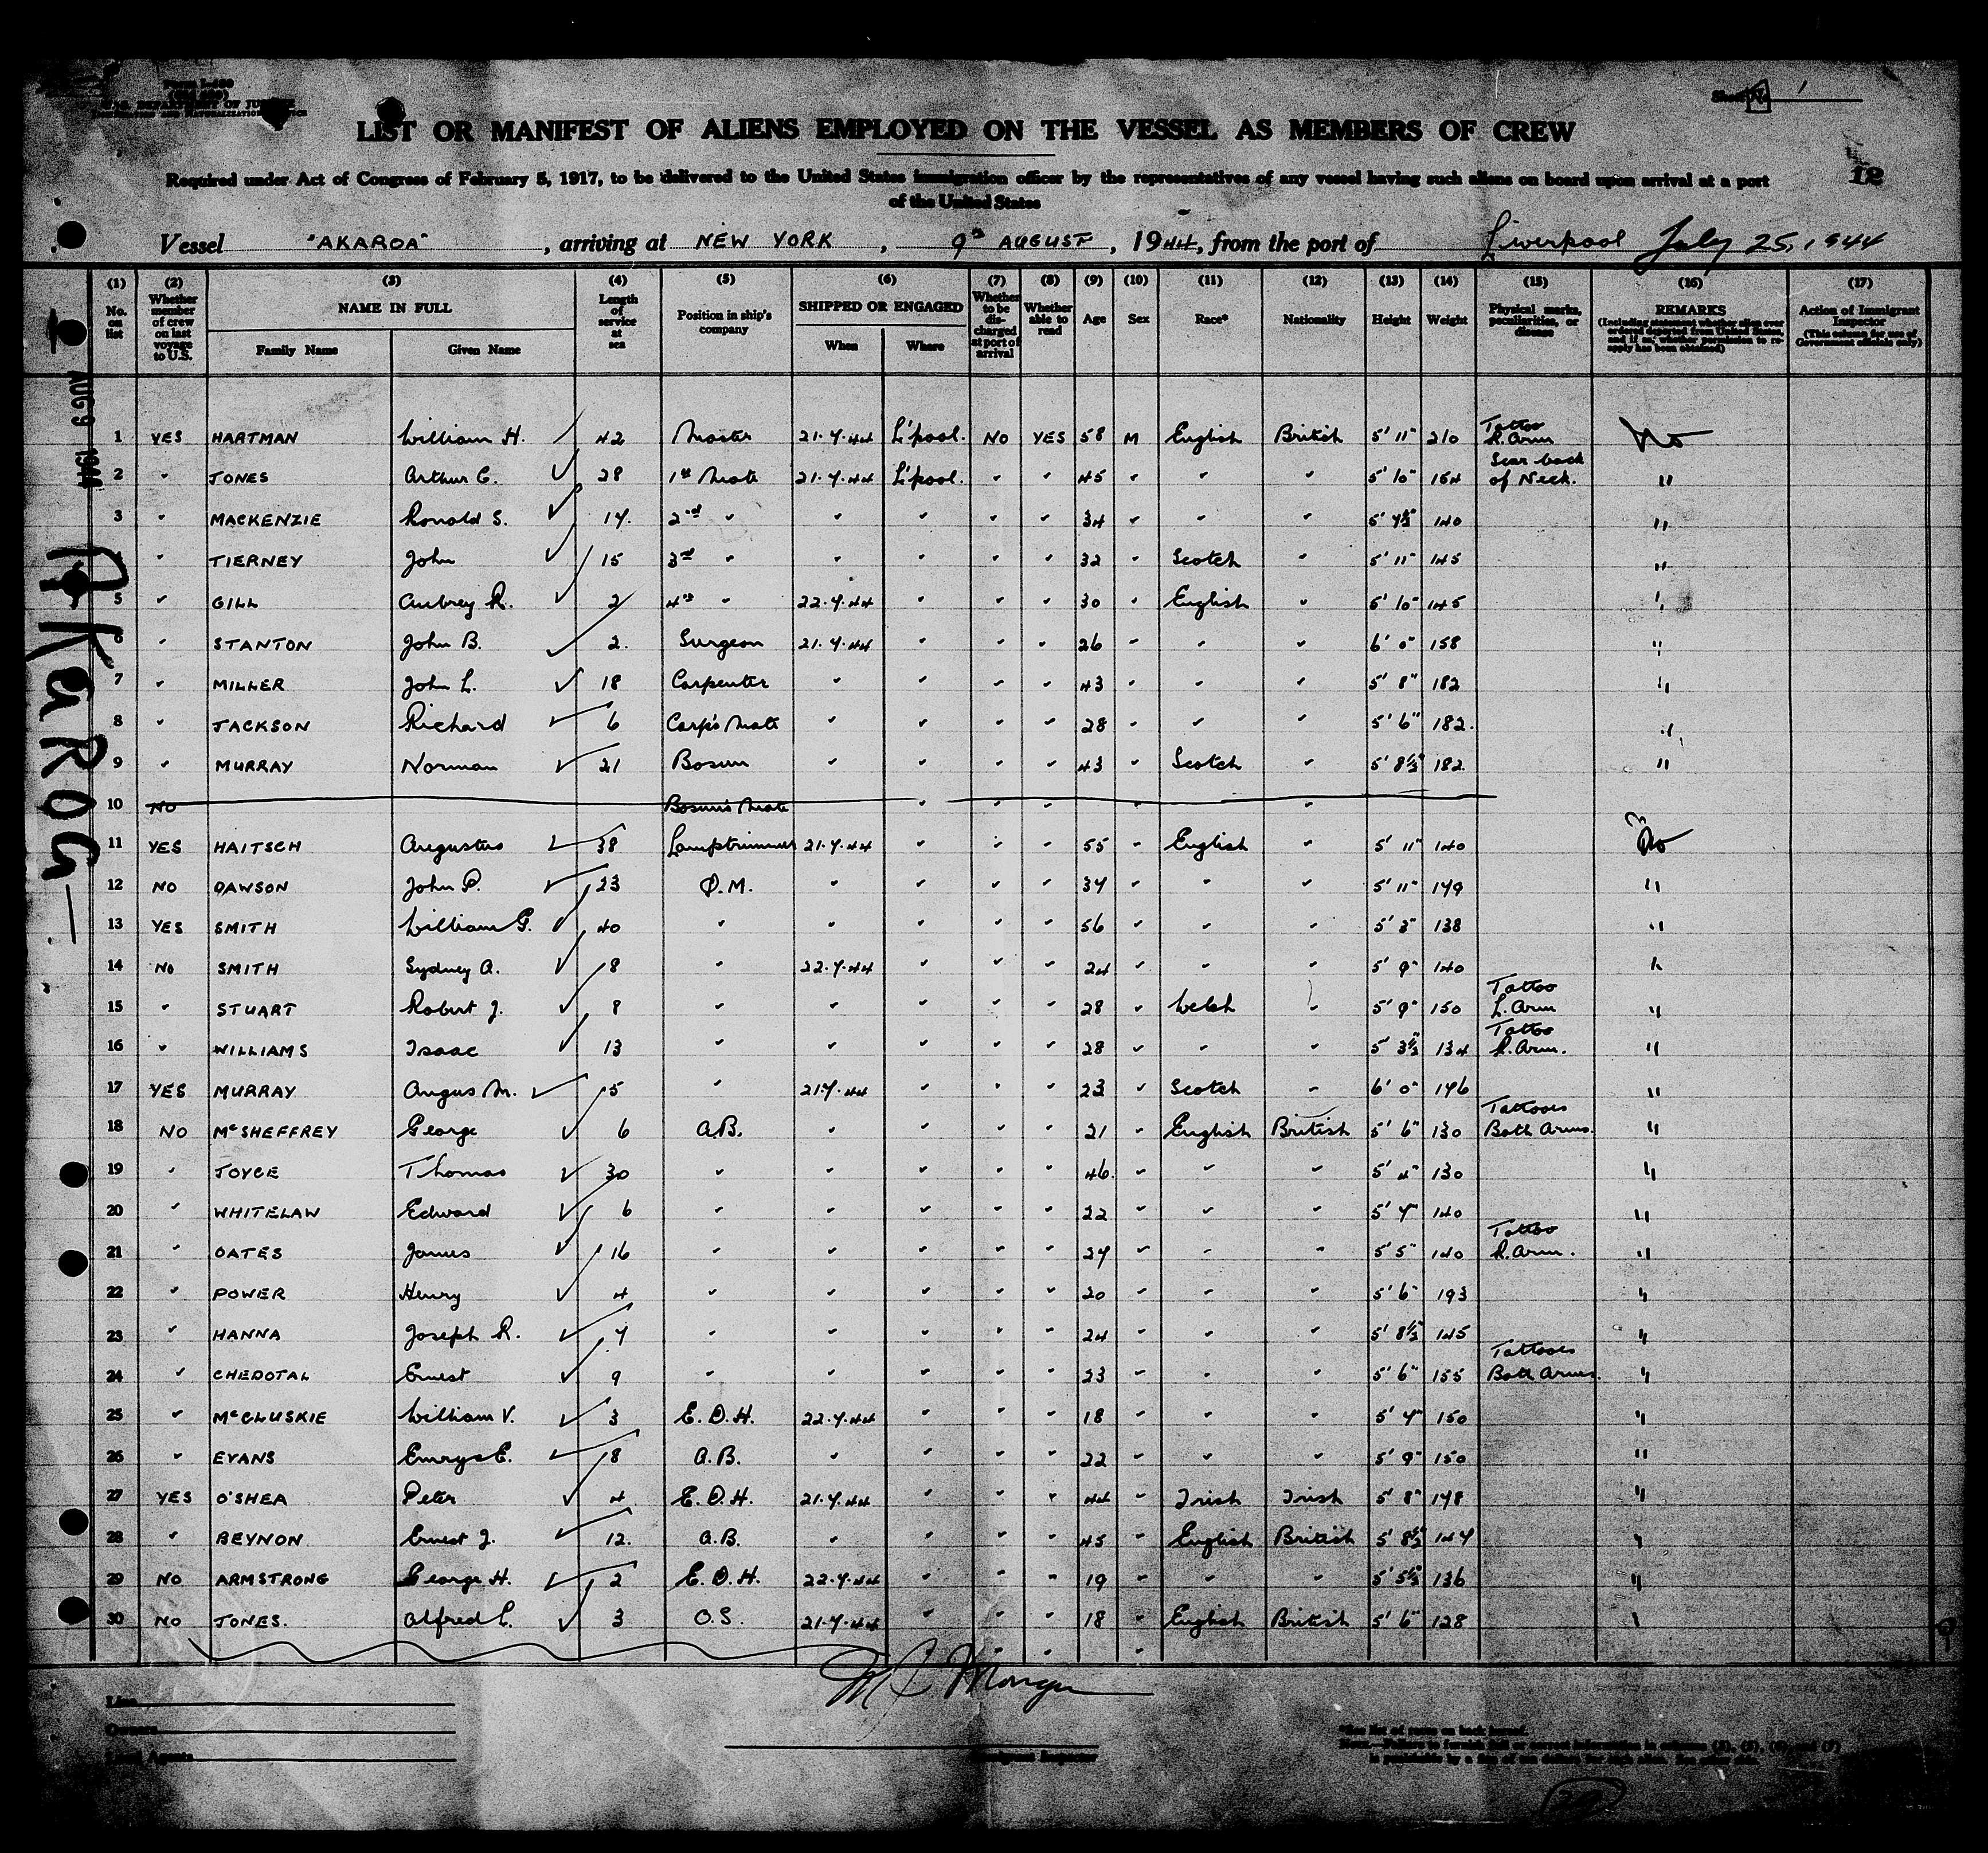 Form I-480
U.S. DEPARTMENT OF JUSTICE
IMMIGRATION AND NATURALIZATION SERVICE
LIST OR MANIFEST OF ALIENS EMPLOYED ON THE VESSEL AS MEMBERS OF CREW
Required under Act of Congress of February 5, 1917, to be delivered to the United States immigration officer by the representatives of any vessel having such aliens on board upon arrival at a port
of the United States
12
Vessel "AKAROA", arriving at NEW YORK, 9th AUGUST, 1944, from the port of Liverpool July 25, 1944
(1) (2) (3) (4) (5) (6) (7) (8) (9) (10) (11) (12) (13) (14) (15) (16) (17)
No. on list | Whether member of crew on last voyage to U.S. | NAME IN FULL Family Name Given Name | Length of service at sea | Position in ship's company | SHIPPED OR ENGAGED When Where | Whether to be discharged at port of arrival | Whether able to read | Age | Sex | Race* | Nationality | Height | Weight | Physical marks, peculiarities, or disease | REMARKS (Including statement whether alien ever ordered deported from United States, and if so, whether permission to reapply has been obtained) | Action of Immigrant Inspector (This column for use of Government officials only)
AUG 9 1944
AKAROA
1 YES HARTMAN William H. 42 Master 21.7.44 L'pool. NO YES 58 M English British 5' 11" 210 Tattoo R. Arm No
2 " JONES Arthur C. 28 1st Mate 21.7.44 L'pool. " " 45 " " " 5' 10" 154 Scar back of Neck. "
3 " MACKENZIE Ronald S. 17. 2nd " " " " " 34 " " " 5' 7½" 140 "
4 " TIERNEY John 15 3rd " " " " " 32 " Scotch " 5' 11" 145 "
5 " GILL Aubrey R. 2 4th " 22.7.44 " " " 30 " English " 5' 10" 145 "
6 " STANTON John B. 2. Surgeon 21.7.44 " " " 26 " " " 6' 0" 158 "
7 " MILLER John L. 18 Carpenter " " " " 43 " " " 5' 8" 182 "
8 " JACKSON Richard 6 Carp's Mate " " " " 28 " " " 5' 6" 182. "
9 " MURRAY Norman 21 Bosun " " " " 43 " Scotch " 5' 8½" 182 "
10 NO Bosun's Mate " " " " "
11 YES HAITSCH Augustus 38 Lamptrimmer 21.7.44 " " " 55 " English " 5' 11" 140 No
12 NO DAWSON John P. 23 Q.M. " " " " 37 " " " 5' 11" 179 "
13 YES SMITH William G. 40 " " " " " 56 " " " 5' 3" 138 "
14 NO SMITH Sydney A. 8 " 22.7.44 " " " 24 " " " 5' 9" 140 "
15 " STUART Robert J. 8 " " " " " 28 " Welsh " 5' 9" 150 Tattoo L. Arm "
16 " WILLIAMS Isaac 13 " " " " " 28 " " " 5' 3½" 134 Tattoo R. Arm. "
17 YES MURRAY Angus M. 5 " 21.7.44 " " " 23 " Scotch " 6' 0" 176 "
18 NO McSHEFFREY George 6 A.B. " " " " 21 " English British 5' 6" 130 Tattooes Both Arms. "
19 " JOYCE Thomas 30 " " " " " 46. " " " 5' 4" 130 "
20 " WHITELAW Edward 6 " " " " " 22 " " " 5' 7" 140 "
21 " OATES James 16 " " " " " 27 " " " 5' 5" 140 Tattoo R. Arm. "
22 " POWER Henry 4 " " " " " 20 " " " 5' 6" 193 "
23 " HANNA Joseph R. 7 " " " " " 24 " " " 5' 8½" 145 "
24 " CHEDOTAL Ernest 9 " " " " " 23 " " " 5' 6" 155 Tattooes Both Arms. "
25 " McCLUSKIE William V. 3 E.D.H. 22.7.44 " " " 18 " " " 5' 7" 150 "
26 " EVANS Emrys E. 8 A.B. " " " " 22 " " " 5' 9" 150 "
27 YES O'SHEA Peter 4 E.D.H. 21.7.44 " " " 44 " Irish Irish 5' 8" 178 "
28 " BEYNON Ernest J. 12. A.B. " " " " 45 " English British 5' 8½" 147 "
29 NO ARMSTRONG George H. 2 E.D.H. 22.7.44 " " " 19 " " " 5' 5½" 136 "
30 NO JONES. Alfred L. 3 O.S. 21.7.44 " " " 18 " English British 5' 6" 128 "
Line
Owners
Local Agents
Immigrant Inspector
*See list of races on back hereof.